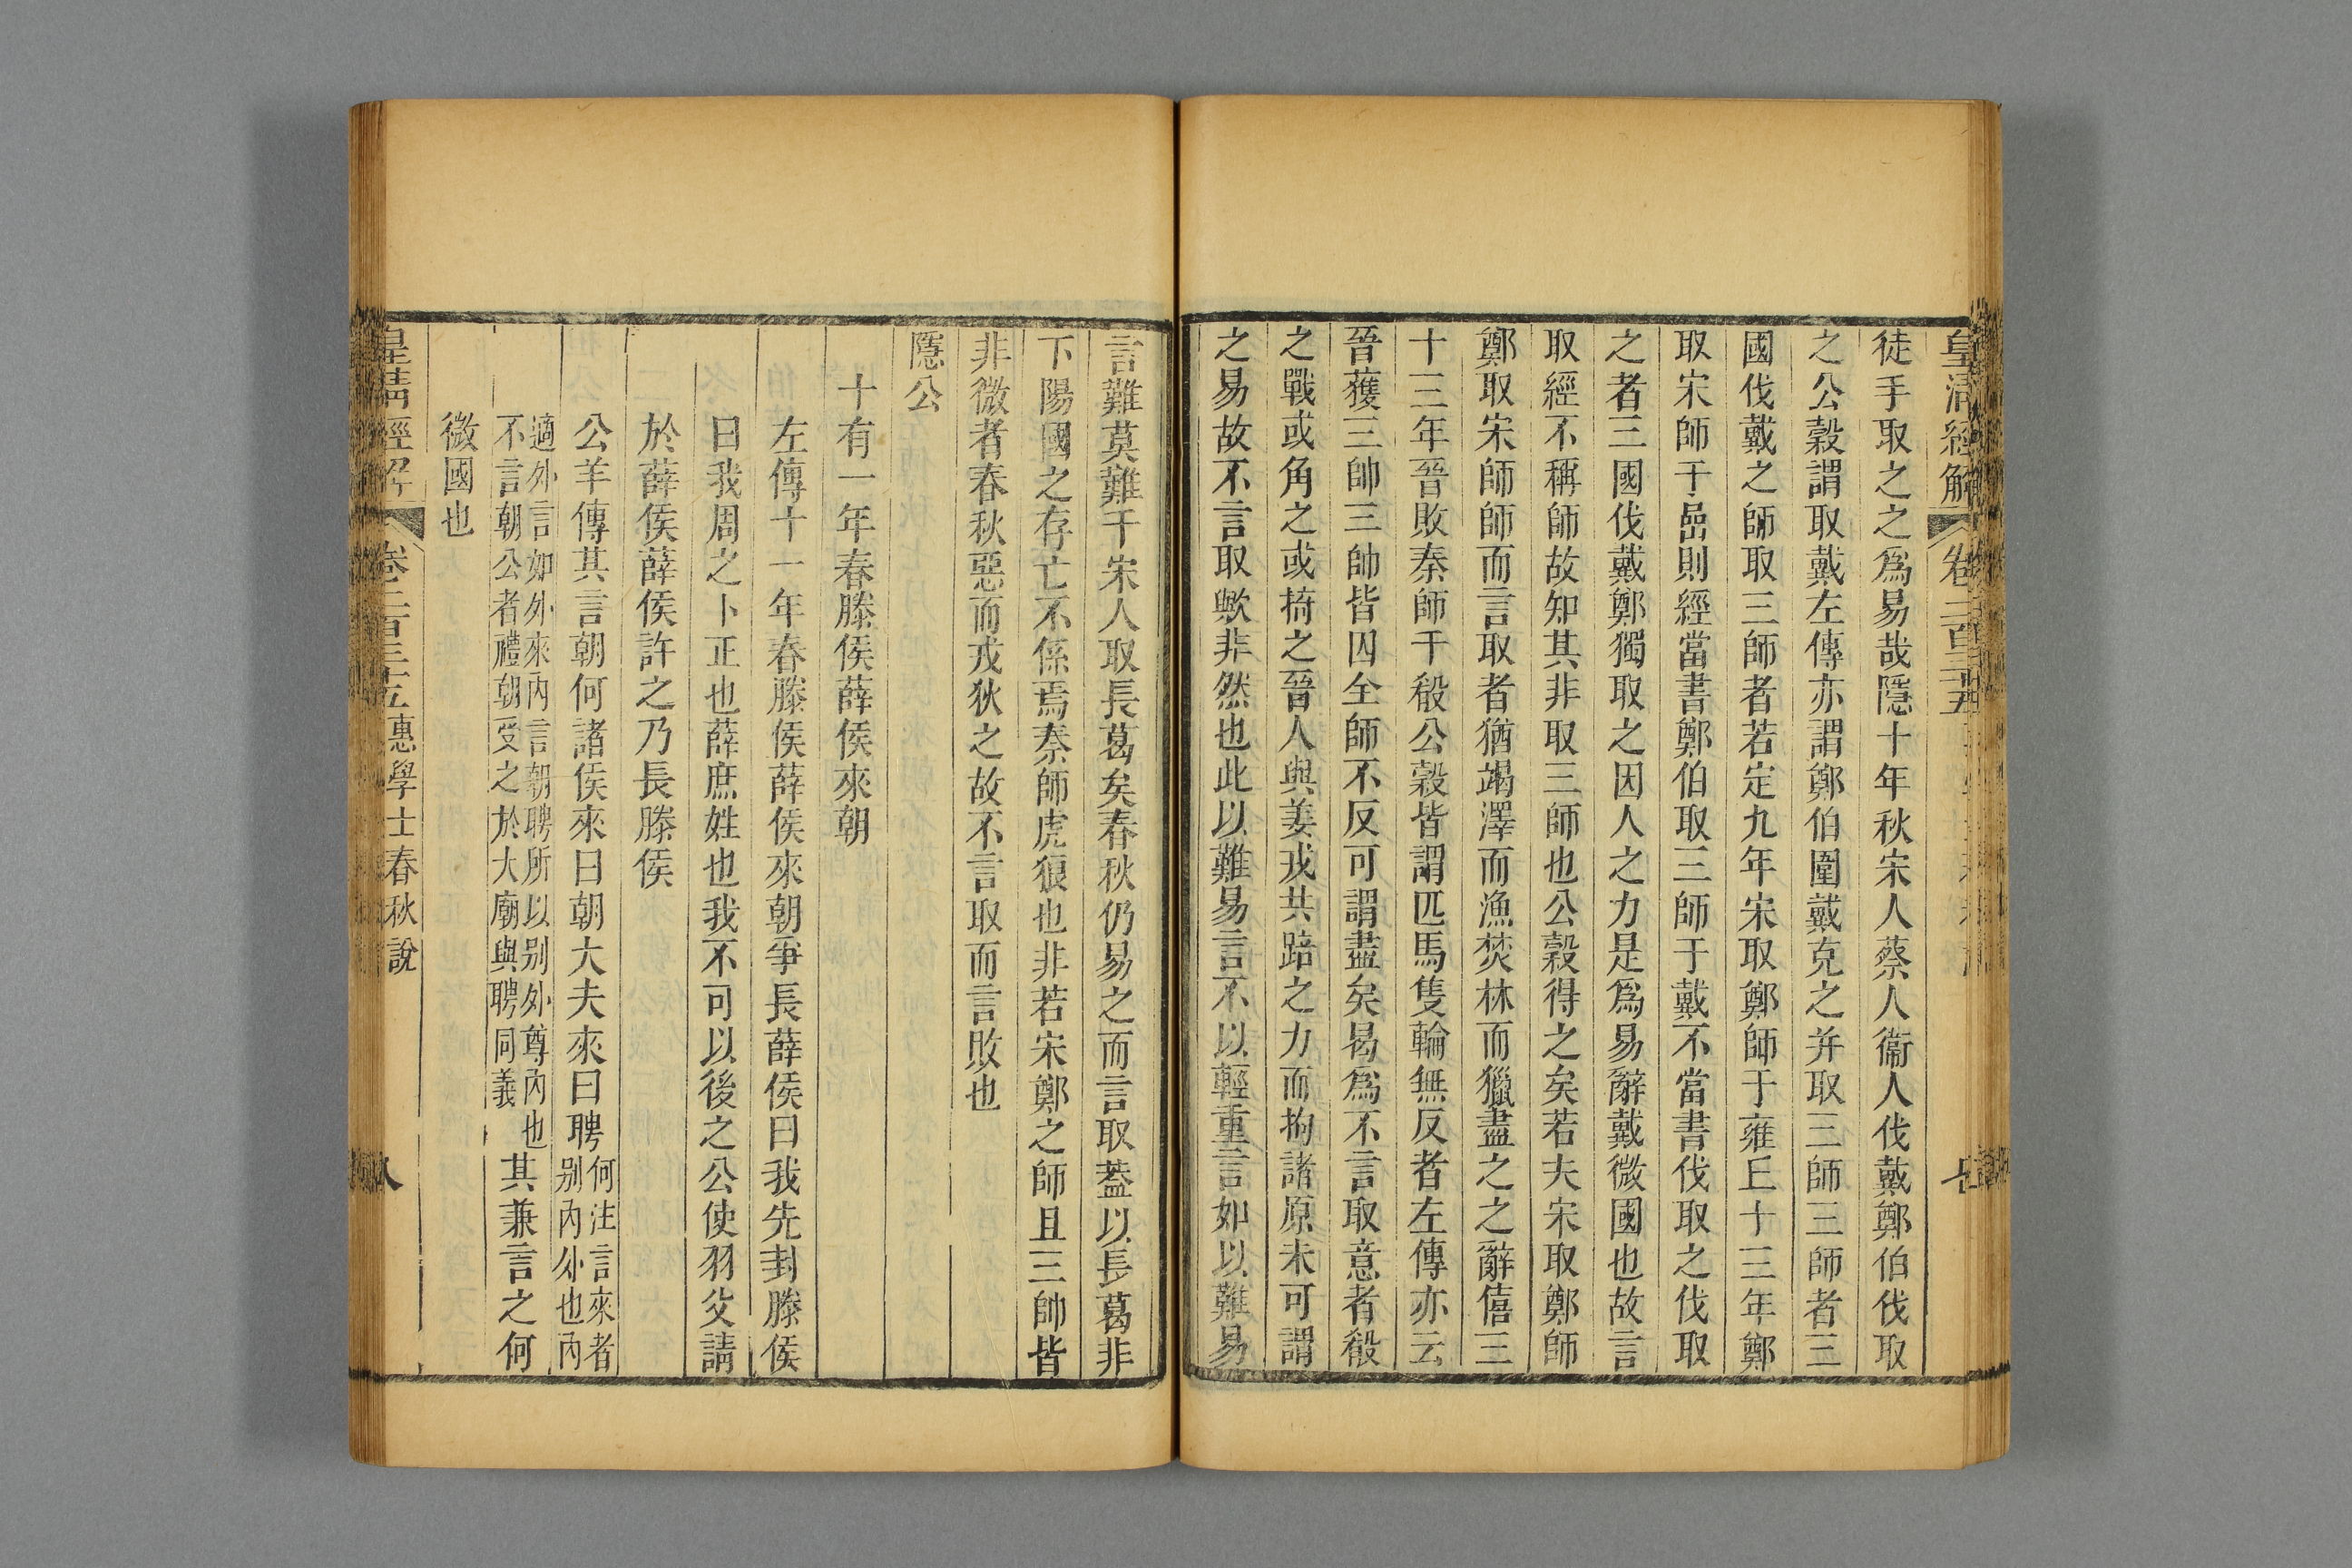 皇清經解 卷二百三十五
徒手取之之爲易哉隱十年秋宋人蔡人衞人伐戴鄭伯伐取
之公穀謂取戴左傳亦謂鄭伯圍戴克之幷取三師三師者三
國伐戴之師取三師者若定九年宋取鄭師于雍丘十三年鄭
取宋師于嵒則經當書鄭伯取三師于戴不當書伐取之伐取
之者三國伐戴鄭獨取之因人之力是爲易辭戴微國也故言
取經不稱師故知其非取三師也公穀得之矣若夫宋取鄭師
鄭取宋師師而言取者猶竭澤而漁焚林而獵盡之之辭僖三
十三年晉敗秦師于殽公穀皆謂匹馬隻輪無反者左傳亦云
晉獲三帥三帥皆囚全師不反可謂盡矣曷爲不言取意者殽
之戰或角之或掎之晉人與姜戎共踣之力而拘諸原未可謂
之易故不言取歟非然也此以難易言不以輕重言如以難易
言難莫難于宋人取長葛矣春秋仍易之而言取葢以長葛非
下陽國之存亡不係焉秦師虎狼也非若宋鄭之師且三帥皆
非微者春秋惡而戎狄之故不言取而言敗也
隱公
十有一年春滕侯薛侯來朝
左傳十一年春滕侯薛侯來朝爭長薛侯曰我先封滕侯
曰我周之卜正也薛庶姓也我不可以後之公使羽父請
於薛侯薛侯許之乃長滕侯
公羊傳其言朝何諸侯來曰朝大夫來曰聘何注言來者
别內外也內
適外言如外來內言朝聘所以别外尊內也
不言朝公者禮朝受之於大廟與聘同義其兼言之何
微國也
皇清經解 卷二百三十五 惠學士春秋說 八